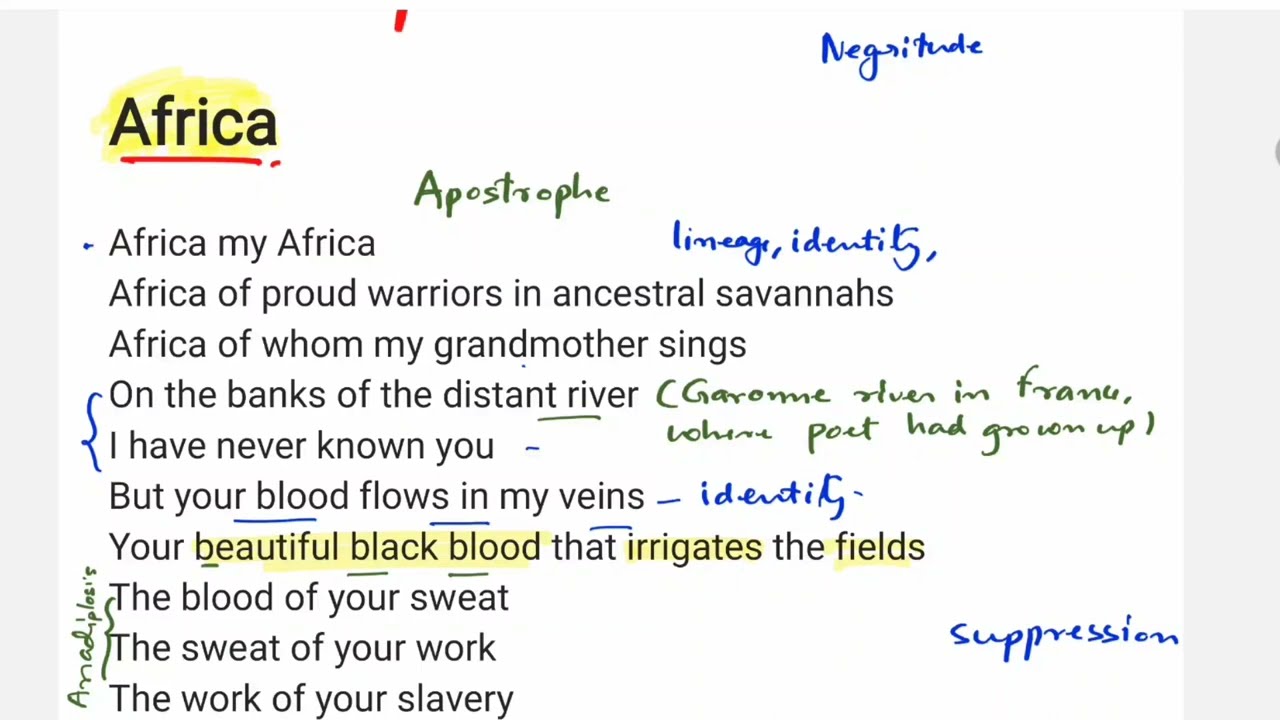 Negritude
Africa
Apostrophe
Africa my Africa
lineage, identity,
Africa of proud warriors in ancestral savannahs
Africa of whom my grandmother sings
On the banks of the distant river (Garonne river in France,
where poet had grown up)
I have never known you -
But your blood flows in my veins – identity.
Your beautiful black blood that irrigates the fields
Anadiplosis
The blood of your sweat
The sweat of your work
suppression
The work of your slavery